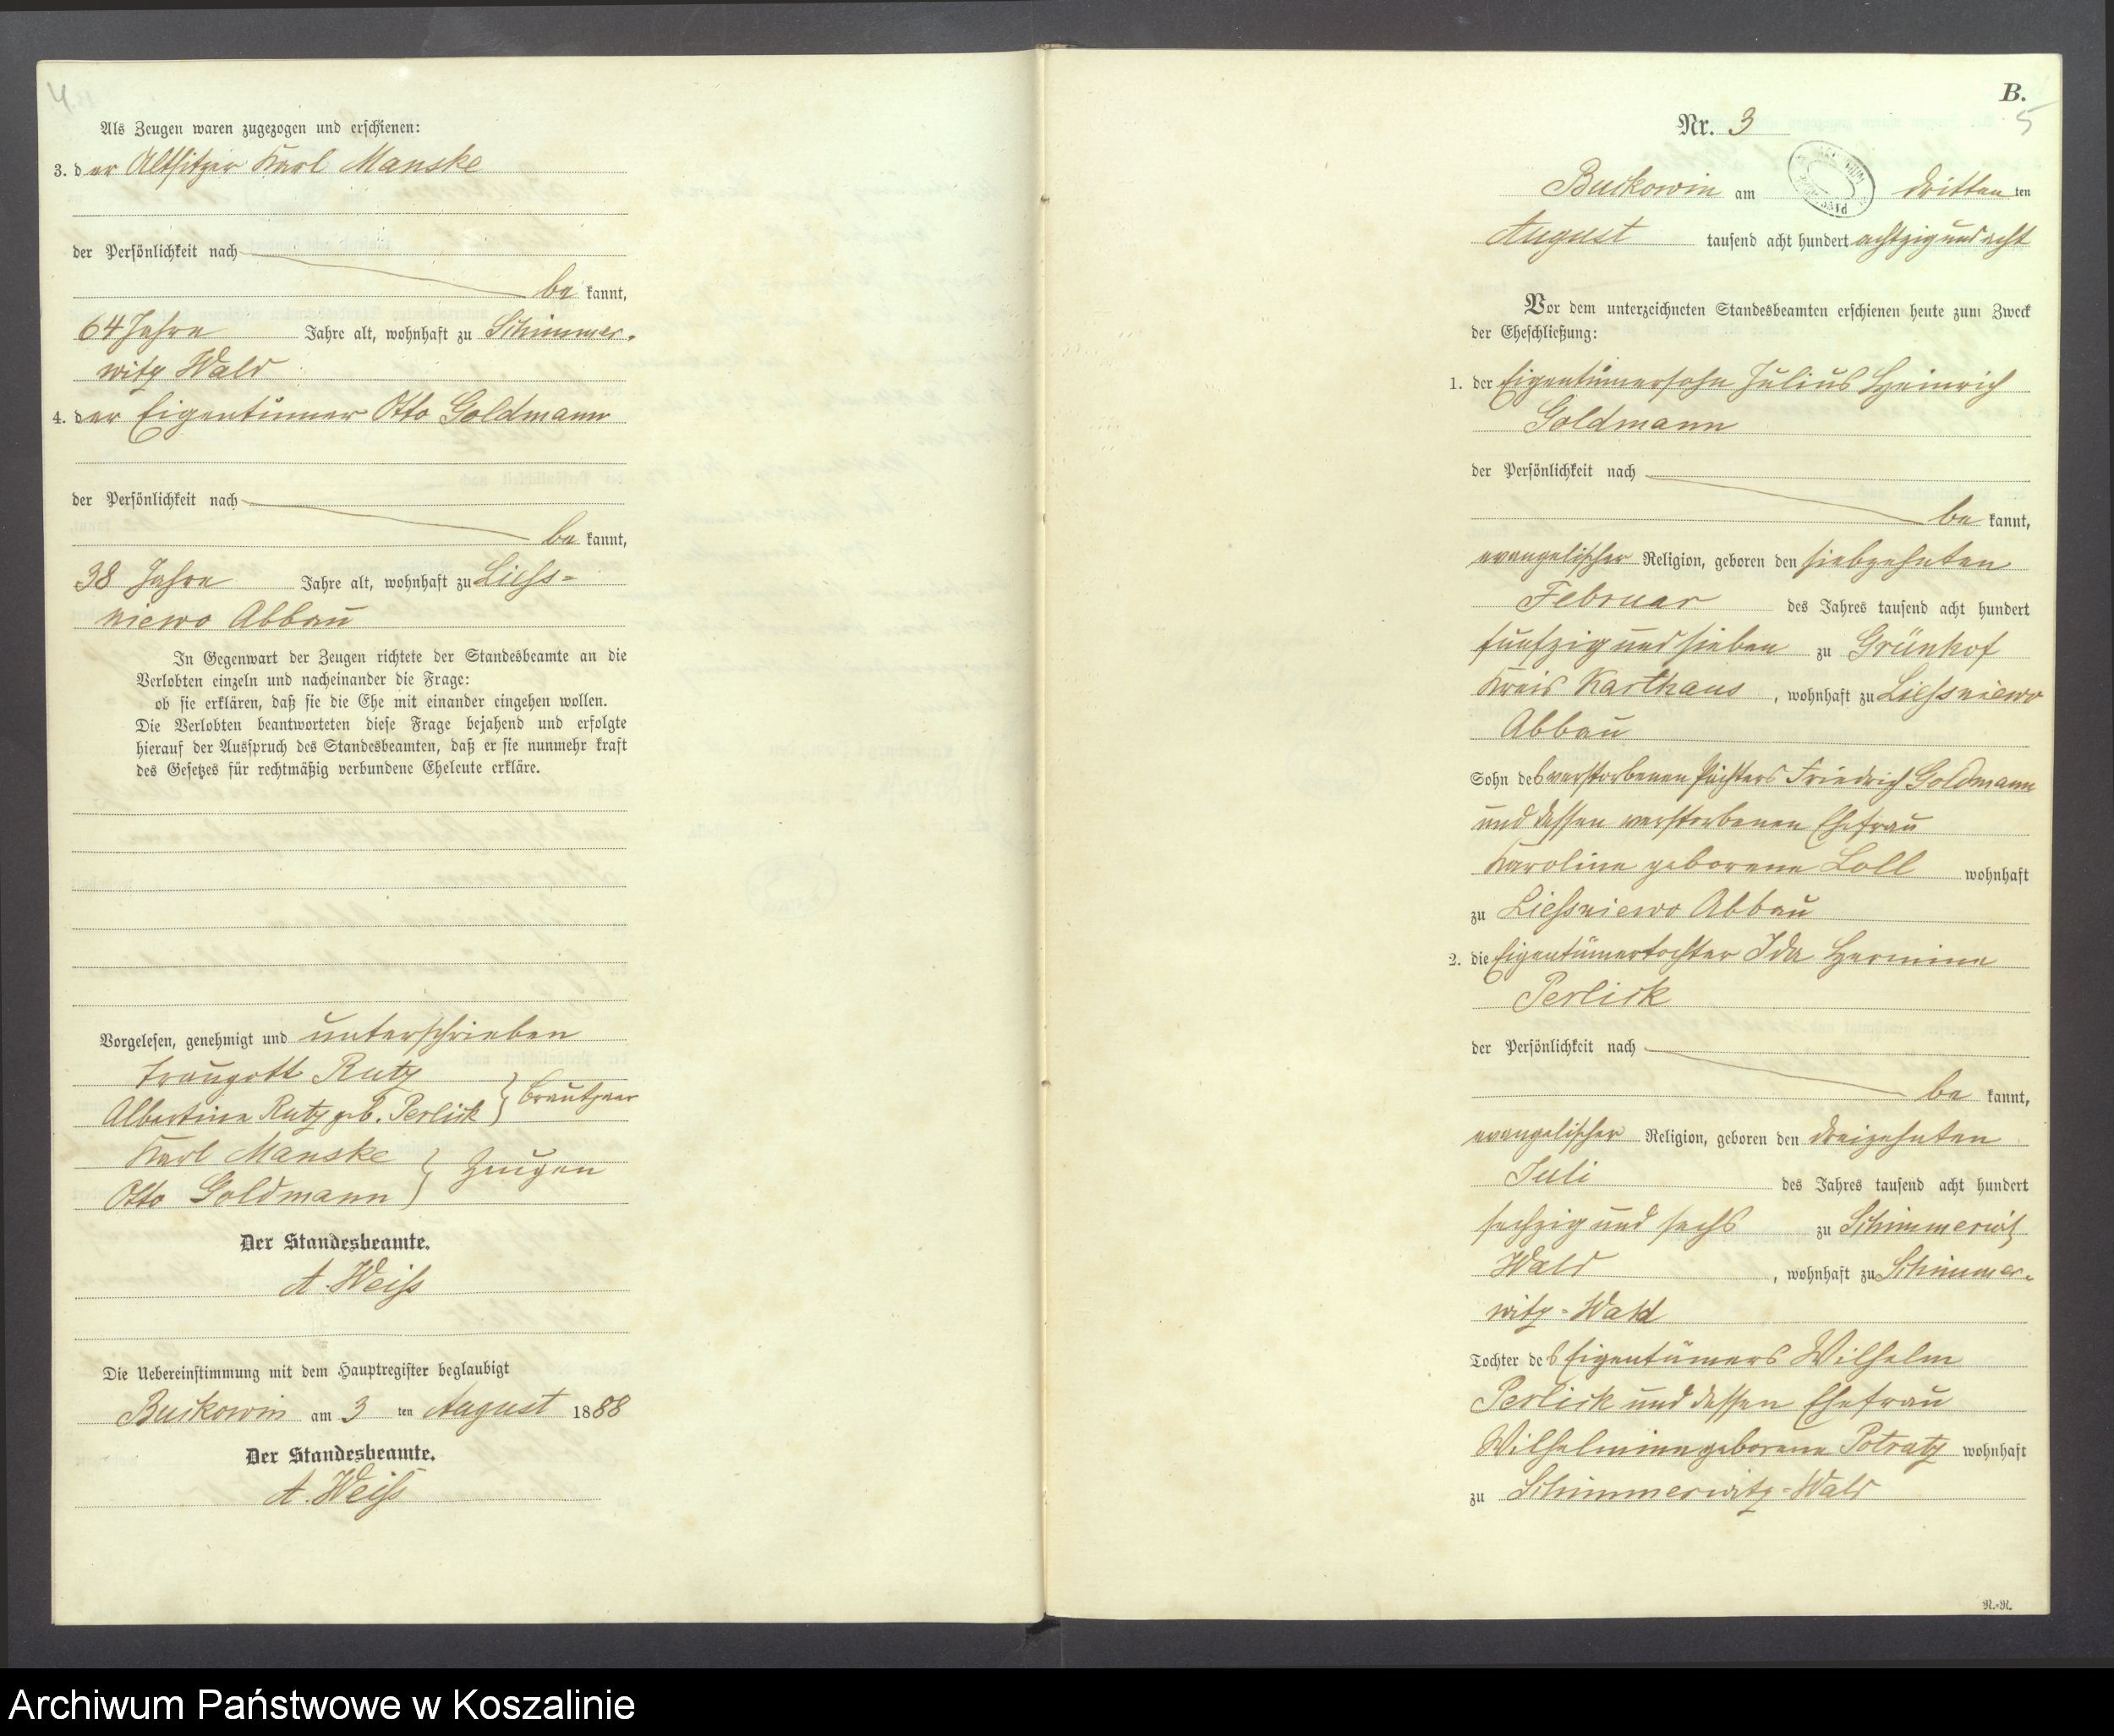 4
Als Zeugen waren zugezogen und erschienen:
3. der Altsitzer Karl Manske
der Persönlichkeit nach
be kannt,
64 Jahre Jahre alt, wohnhaft zu Schimmer-
witz Wald
4. der Eigentümer Otto Goldmann
der Persönlichkeit nach
be kannt,
38 Jahre Jahre alt, wohnhaft zu Liessniewo
niewo Abbau
In Gegenwart der Zeugen richtete der Standesbeamte an die
Verlobten einzeln und nacheinander die Frage:
ob sie erklären, daß sie die Ehe mit einander eingehen wollen.
Die Verlobten beantworteten diese Frage bejahend und erfolgte
hierauf der Ausspruch des Standesbeamten, daß er sie nunmehr kraft
des Gesetzes für rechtmäßig verbundene Eheleute erkläre.
Vorgelesen, genehmigt und unterschrieben
Traugott Rutz
Albertine Rutz geb. Perlick } Brautpaar
Karl Manske
Otto Goldmann } Zeugen
Der Standesbeamte.
A. Weiss
Die Uebereinstimmung mit dem Hauptregister beglaubigt
Buckowin am 3 ten August 1888
Der Standesbeamte.
A. Weiss
B.
5
Nr. 3
Buckowin am dritten ten
August tausend acht hundert achtzig und acht
Vor dem unterzeichneten Standesbeamten erschienen heute zum Zweck
der Eheschließung:
1. der Eigentümersohn Julius Heinrich
Goldmann
der Persönlichkeit nach
be kannt,
evangelischer Religion, geboren den siebzehnten
Februar des Jahres tausend acht hundert
fünfzig und sieben zu Grünhof
Kreis Karthaus, wohnhaft zu Liessniewo
Abbau
Sohn des verstorbenen Pächters Friedrich Goldmann
und dessen verstorbenen Ehefrau
Karoline geborene Loll wohnhaft
zu Liessniewo Abbau
2. die Eigentümertochter Ida Hermine
Perlick
der Persönlichkeit nach
be kannt,
evangelischer Religion, geboren den dreizehnten
Juli des Jahres tausend acht hundert
sechzig und sechs zu Schimmerwitz
Wald, wohnhaft zu Schimmer-
witz-Wald
Tochter des Eigentümers Wilhelm
Perlick und dessen Ehefrau
Wilhelmine geborene Potratz wohnhaft
zu Schimmerwitz-Wald
N.-N.
Archiwum Państwowe w Koszalinie